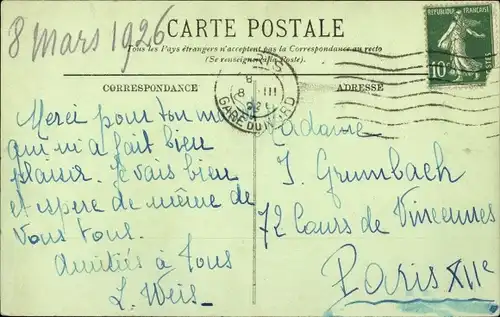 8 Mars 1926
CARTE POSTALE
Tous les Pays étrangers n'acceptent pas la Correspondance au recto
(Se renseigner à la Poste).
RÉPUBLIQUE FRANÇAISE
10c
8 III
GARE DU NORD
CORRESPONDANCE
ADRESSE
Merci pour ton mot
qui m'a fait bien
plaisir. Je vais bien
et espère de même de
vous tous.
Amitiés à Tous
L. Weis
Madame
J. Grumbach
72 Cours de Vincennes
Paris XIIe